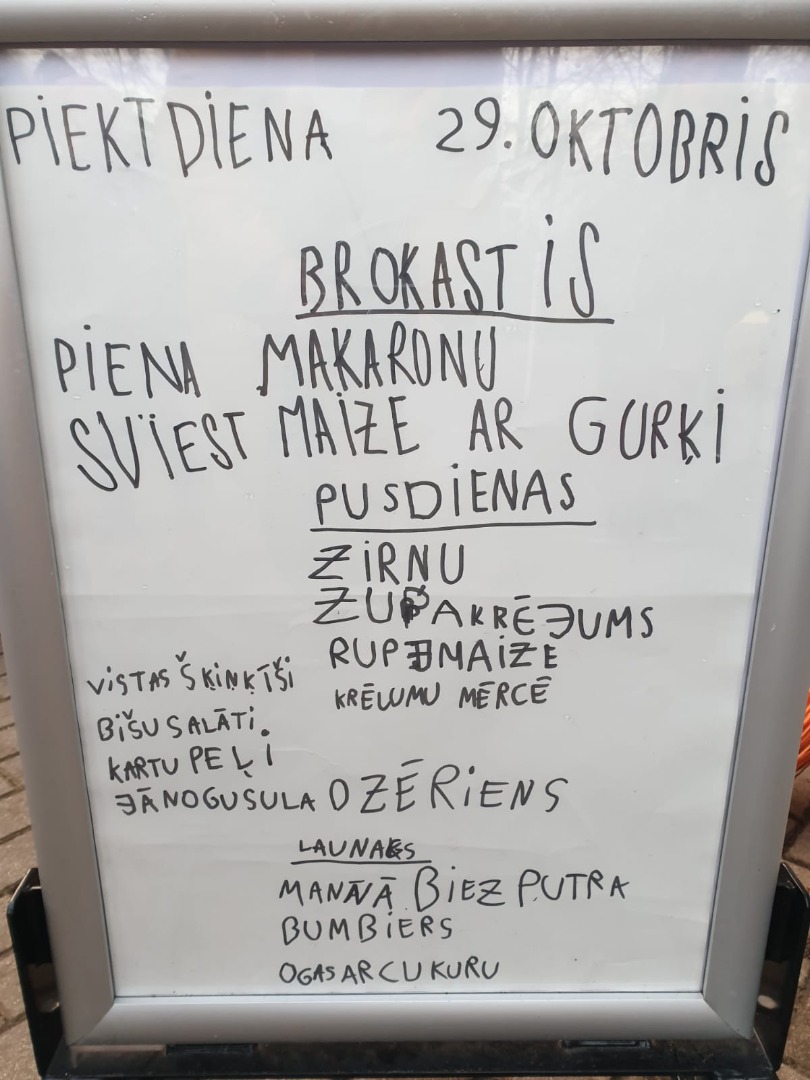 PIEKTDIENA 29. OKTOBRIS
BROKASTIS
PIENA MAKARONU
SVIEST MAIZE AR GURĶI
PUSDIENAS
ZIRNU
ZUPA KRĒJUMS
RUPJMAIZE
VISTAS ŠĶIŅĶĪŠI KRĒJUMU MĒRCĒ
BIŠU SALĀTI.
KARTUPEĻI
JĀNOGUSULA DZĒRIENS
LAUNAGS
MANNĀ BIEZPUTRA
BUMBIERS
OGAS AR CUKURU